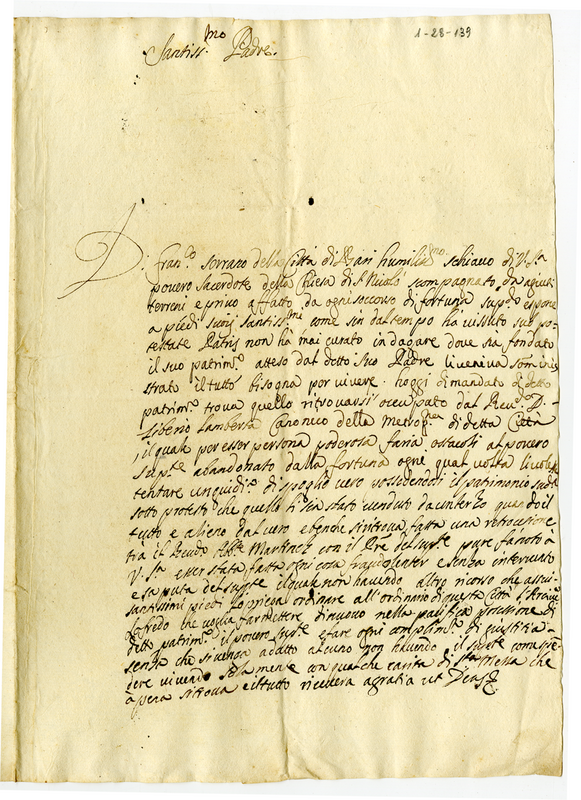 1-28-139
Santiss.mo Padre.
D. Fran.co Serrano della Città di Bari humiliss.mo schiavo di V. S.tà
povero sacerdote della Chiesa di S. Nicolò scompagnato da agiuti
terreni e privo affatto da ogni soccorso di fortuna supp.do espone
a piedi suoi santissimi come sin dal tempo ha vissuto sub po-
testate Patris non ha mai curato indagare dove sia fondato
il suo patrim.o atteso dal detto suo Padre li veniva somini
strato il tutto bisogna por vivere. hoggi dimandato di detto
patrim.o trova quello ritrovarsi occupato dal Reu.do D.
Liberio Lamberta Canonico della Metrop. di detta Città
, il quale por esser persona poderosa faria ostacoli al povero
supp.te abandonato dalla fortuna ogni qual volta li volesse
tentare un giudi.o di spoglio vero possedendosi il patrimonio sud.o
sotto protesto che quello li sia stato venduto da un terzo quando il
tutto è alieno dal vero e benche si ritrova fatta una retrocessione
tra il Reudo Abb.e Martinelz con il P.re del supp.te pure fa noto a
V. S.tà esser stata fatta ogni cosa fraudolenter e senza intervento
e saputa del supp.te il quale non havendo altro ricorso che a suoi
santissimi piedi la priega ordinare all'ordinario di questa Città
che voglia far mettere di nuovo nella pacifica possessione di
detto patrim.o il povero supp.te e fare ogni complim.to di giustitia
senza che si venga adatto alcuno non havendo il supp.te come spe-
dere vivendo solamente con qualche carità di S.ta Messa che
apena si trova e il tutto ricevera a gratia ut Deus